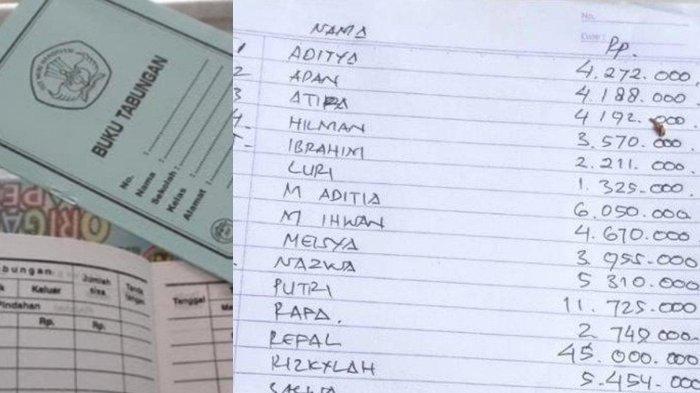 BUKU TABUNGAN
No. :
Nama :
Sekolah :
Kelas :
Alamat :
ORIGA
APE
bungan
Keluar
Jumlah sisa
Tanda tangan
Pindahan
Rp.
Rp.
Tanggal
No.
Date :
NAMA Rp.
1 ADITYA 4.272.000,
2 APAN 4.188.000
3 ATIRA 4.192.000.
4 HILMAN 3.570.000.
IBRAHIM 2.211.000.
LURI 1.325.000
M ADITIA 6.050.000
M IHWAN 4.670.000.
MEISYA 3.955.000
NAZWA 5 310.000
PUTRI 11.725.000
RAPA. 2 749.000
REPAL 45.000.000
RIZKYLAH 5.454.000